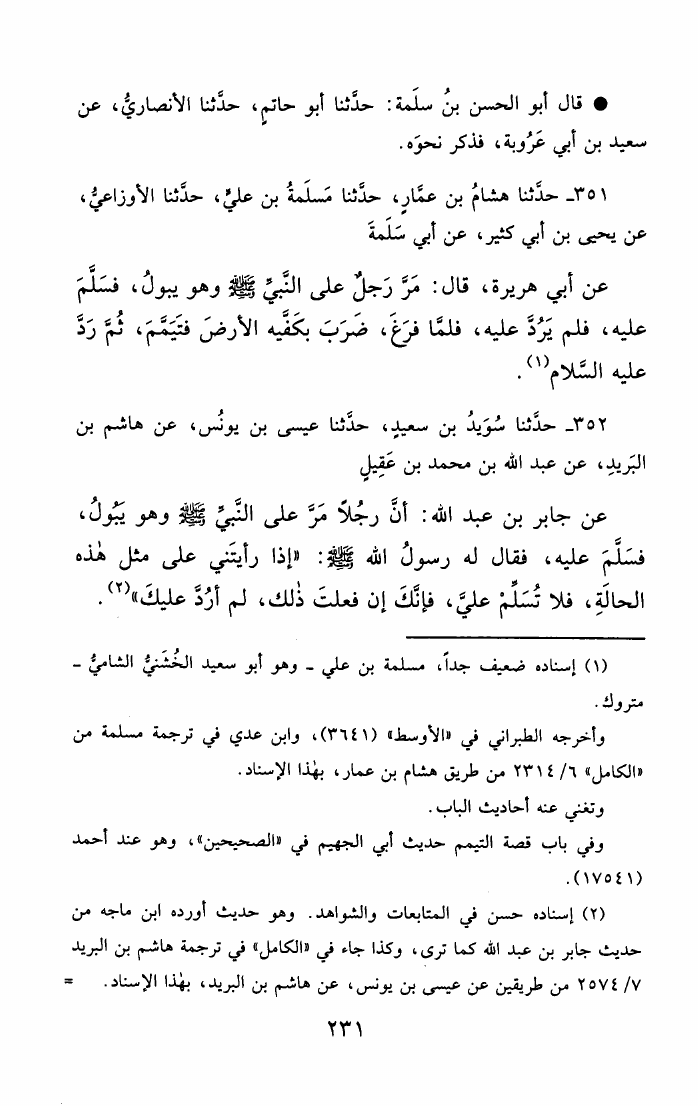 ● قال أبو الحسن بنُ سلَمة: حدَّثنا أبو حاتمٍ، حدَّثنا الأنصاريُّ، عن
سعيد بن أبي عَرُوبة، فذكر نحوَه.
٣٥١ـ حدَّثنا هشامُ بن عمَّارٍ، حدَّثنا مَسلَمةُ بن عليٍّ، حدَّثنا الأوزاعيُّ،
عن يحيى بن أبي كثير، عن أبي سَلَمةَ
عن أبي هريرة، قال: مَرَّ رَجلٌ على النَّبيِّ ﷺ وهو يبولُ، فسَلَّمَ
عليه، فلم يَرُدَّ عليه، فلمَّا فرَغَ، ضَرَبَ بكَفَّيه الأرضَ فتَيَمَّمَ، ثُمَّ رَدَّ
عليه السَّلام(١).
٣٥٢ـ حدَّثنا سُوَيدُ بن سعيدٍ، حدَّثنا عيسى بن يونُس، عن هاشم بن
البَريدِ، عن عبد الله بن محمد بن عَقِيلٍ
عن جابر بن عبد الله: أنَّ رجُلاً مَرَّ على النَّبيِّ ﷺ وهو يَبُولُ،
فسَلَّمَ عليه، فقال له رسولُ الله ﷺ: «إذا رأيتَني على مثل هٰذه
الحالَةِ، فلا تُسَلِّمْ عليَّ، فإنَّكَ إن فعلتَ ذٰلك، لم أرُدَّ عليكَ»(٢).
(١) إسناده ضعيف جداً، مسلمة بن علي ـ وهو أبو سعيد الخُشَنيُّ الشاميُّ ـ
متروك.
وأخرجه الطبراني في «الأوسط» (٣٦٤١)، وابن عدي في ترجمة مسلمة من
«الكامل» ٦/ ٢٣١٤ من طريق هشام بن عمار، بهٰذا الإسناد.
وتغني عنه أحاديث الباب.
وفي باب قصة التيمم حديث أبي الجهيم في «الصحيحين»، وهو عند أحمد
(١٧٥٤١).
(٢) إسناده حسن في المتابعات والشواهد. وهو حديث أورده ابن ماجه من
حديث جابر بن عبد الله كما ترى، وكذا جاء في «الكامل» في ترجمة هاشم بن البريد
٧/ ٢٥٧٤ من طريقين عن عيسى بن يونس، عن هاشم بن البريد، بهٰذا الإسناد. =
٢٣١